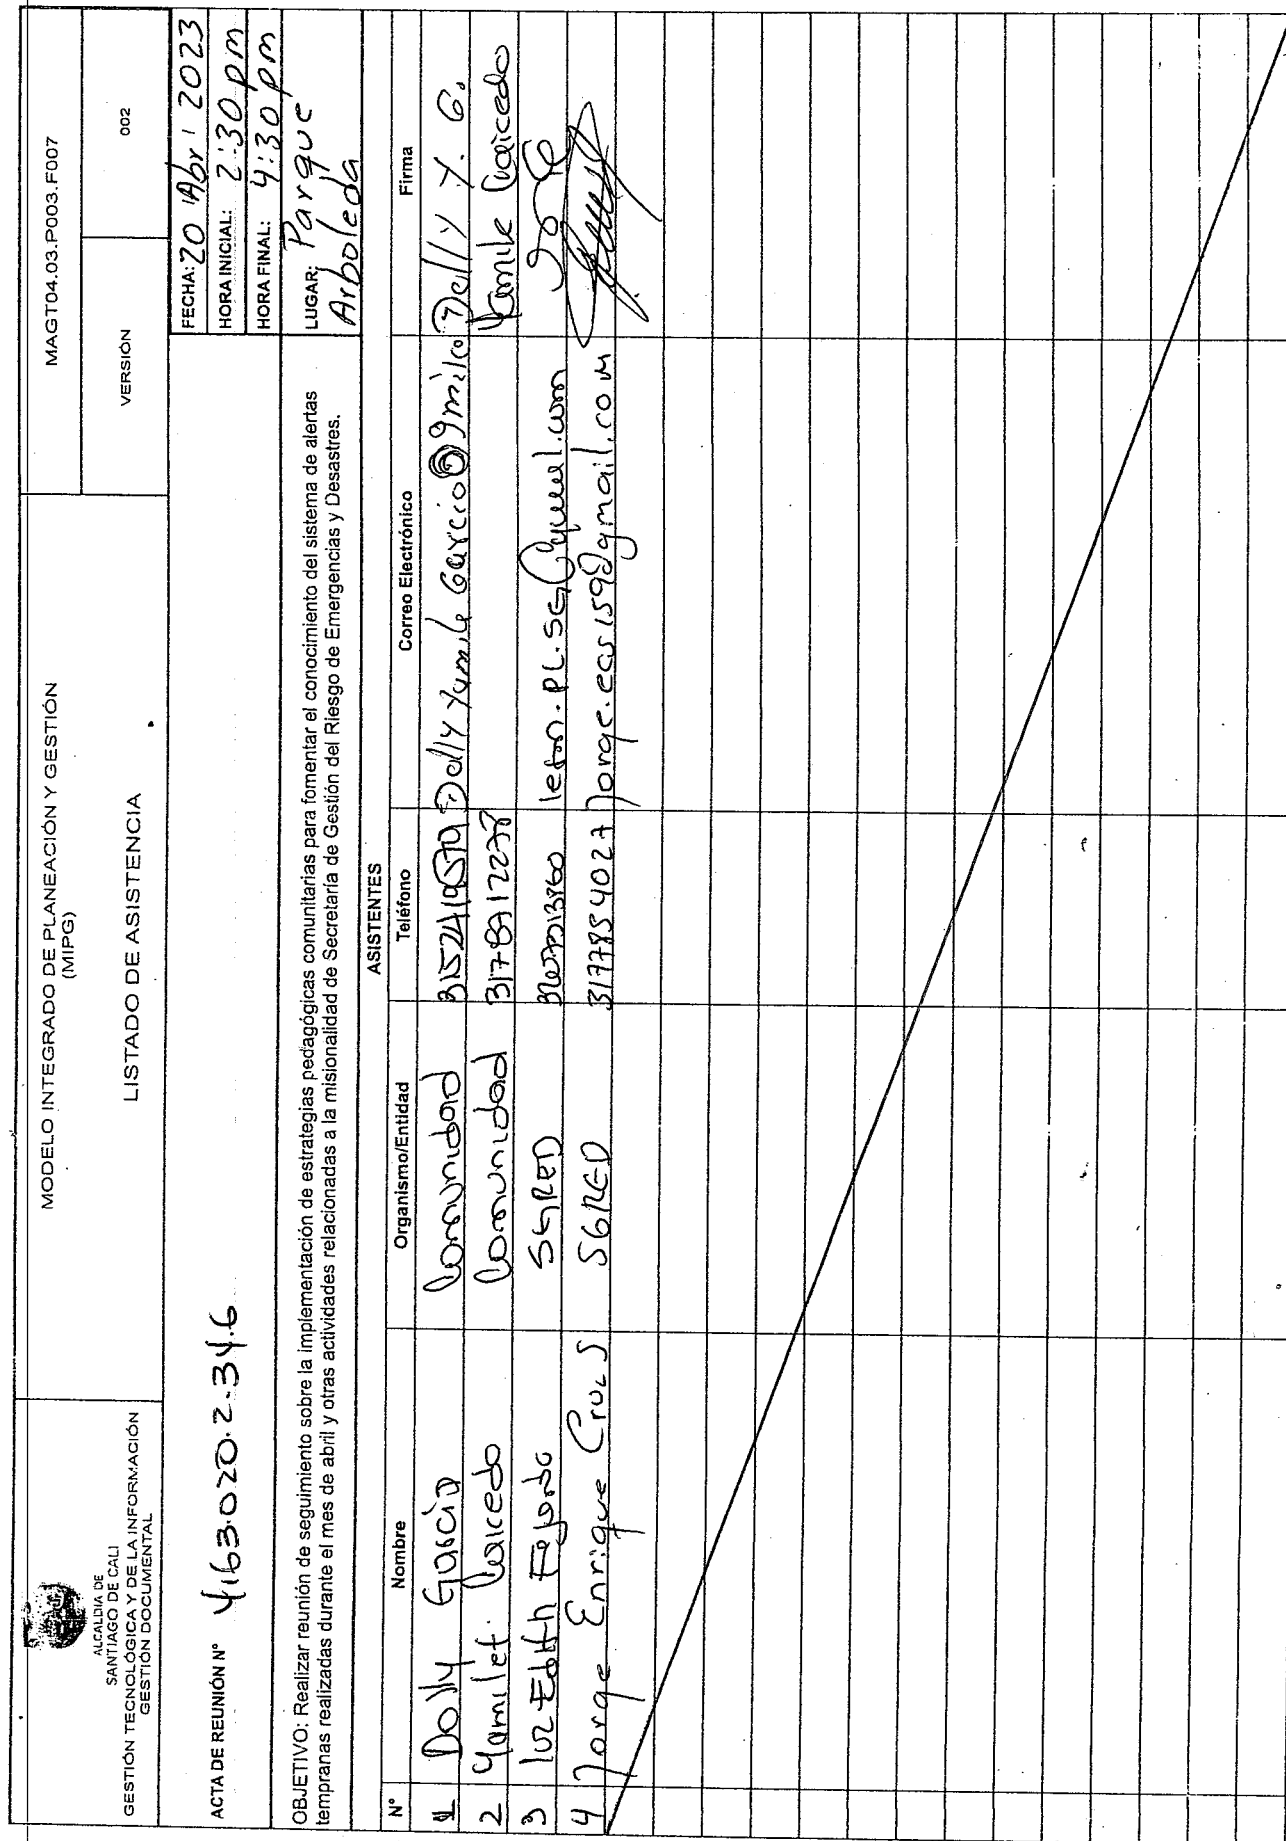 ALCALDIA DE
SANTIAGO DE CALI
GESTIÓN TECNOLÓGICA Y DE LA INFORMACIÓN
GESTIÓN DOCUMENTAL
MODELO INTEGRADO DE PLANEACIÓN Y GESTIÓN
(MIPG)
LISTADO DE ASISTENCIA
MAGT04.03.P003.F007
VERSIÓN 002
ACTA DE REUNIÓN N° 4163.020.2.34.6
FECHA: 20 Abri 2023
HORA INICIAL: 2:30 pm
HORA FINAL: 4:30 pm
LUGAR: Parque
Arboleda
OBJETIVO: Realizar reunión de seguimiento sobre la implementación de estrategias pedagógicas comunitarias para fomentar el conocimiento del sistema de alertas
tempranas realizadas durante el mes de abril y otras actividades relacionadas a la misionalidad de Secretaría de Gestión del Riesgo de Emergencias y Desastres.
ASISTENTES
N° Nombre Organismo/Entidad Teléfono Correo Electrónico Firma
1 Dolly García Comunidad Dolly Yamile Garcia@gmilco Dolly Y. G.
2 Yamilet Caicedo Comunidad Yamile Caicedo
3 luz Edith SGRED
4 Jorge Enrique Cruz S SGRED 3177854027 jorge.ecs159@gmail.com